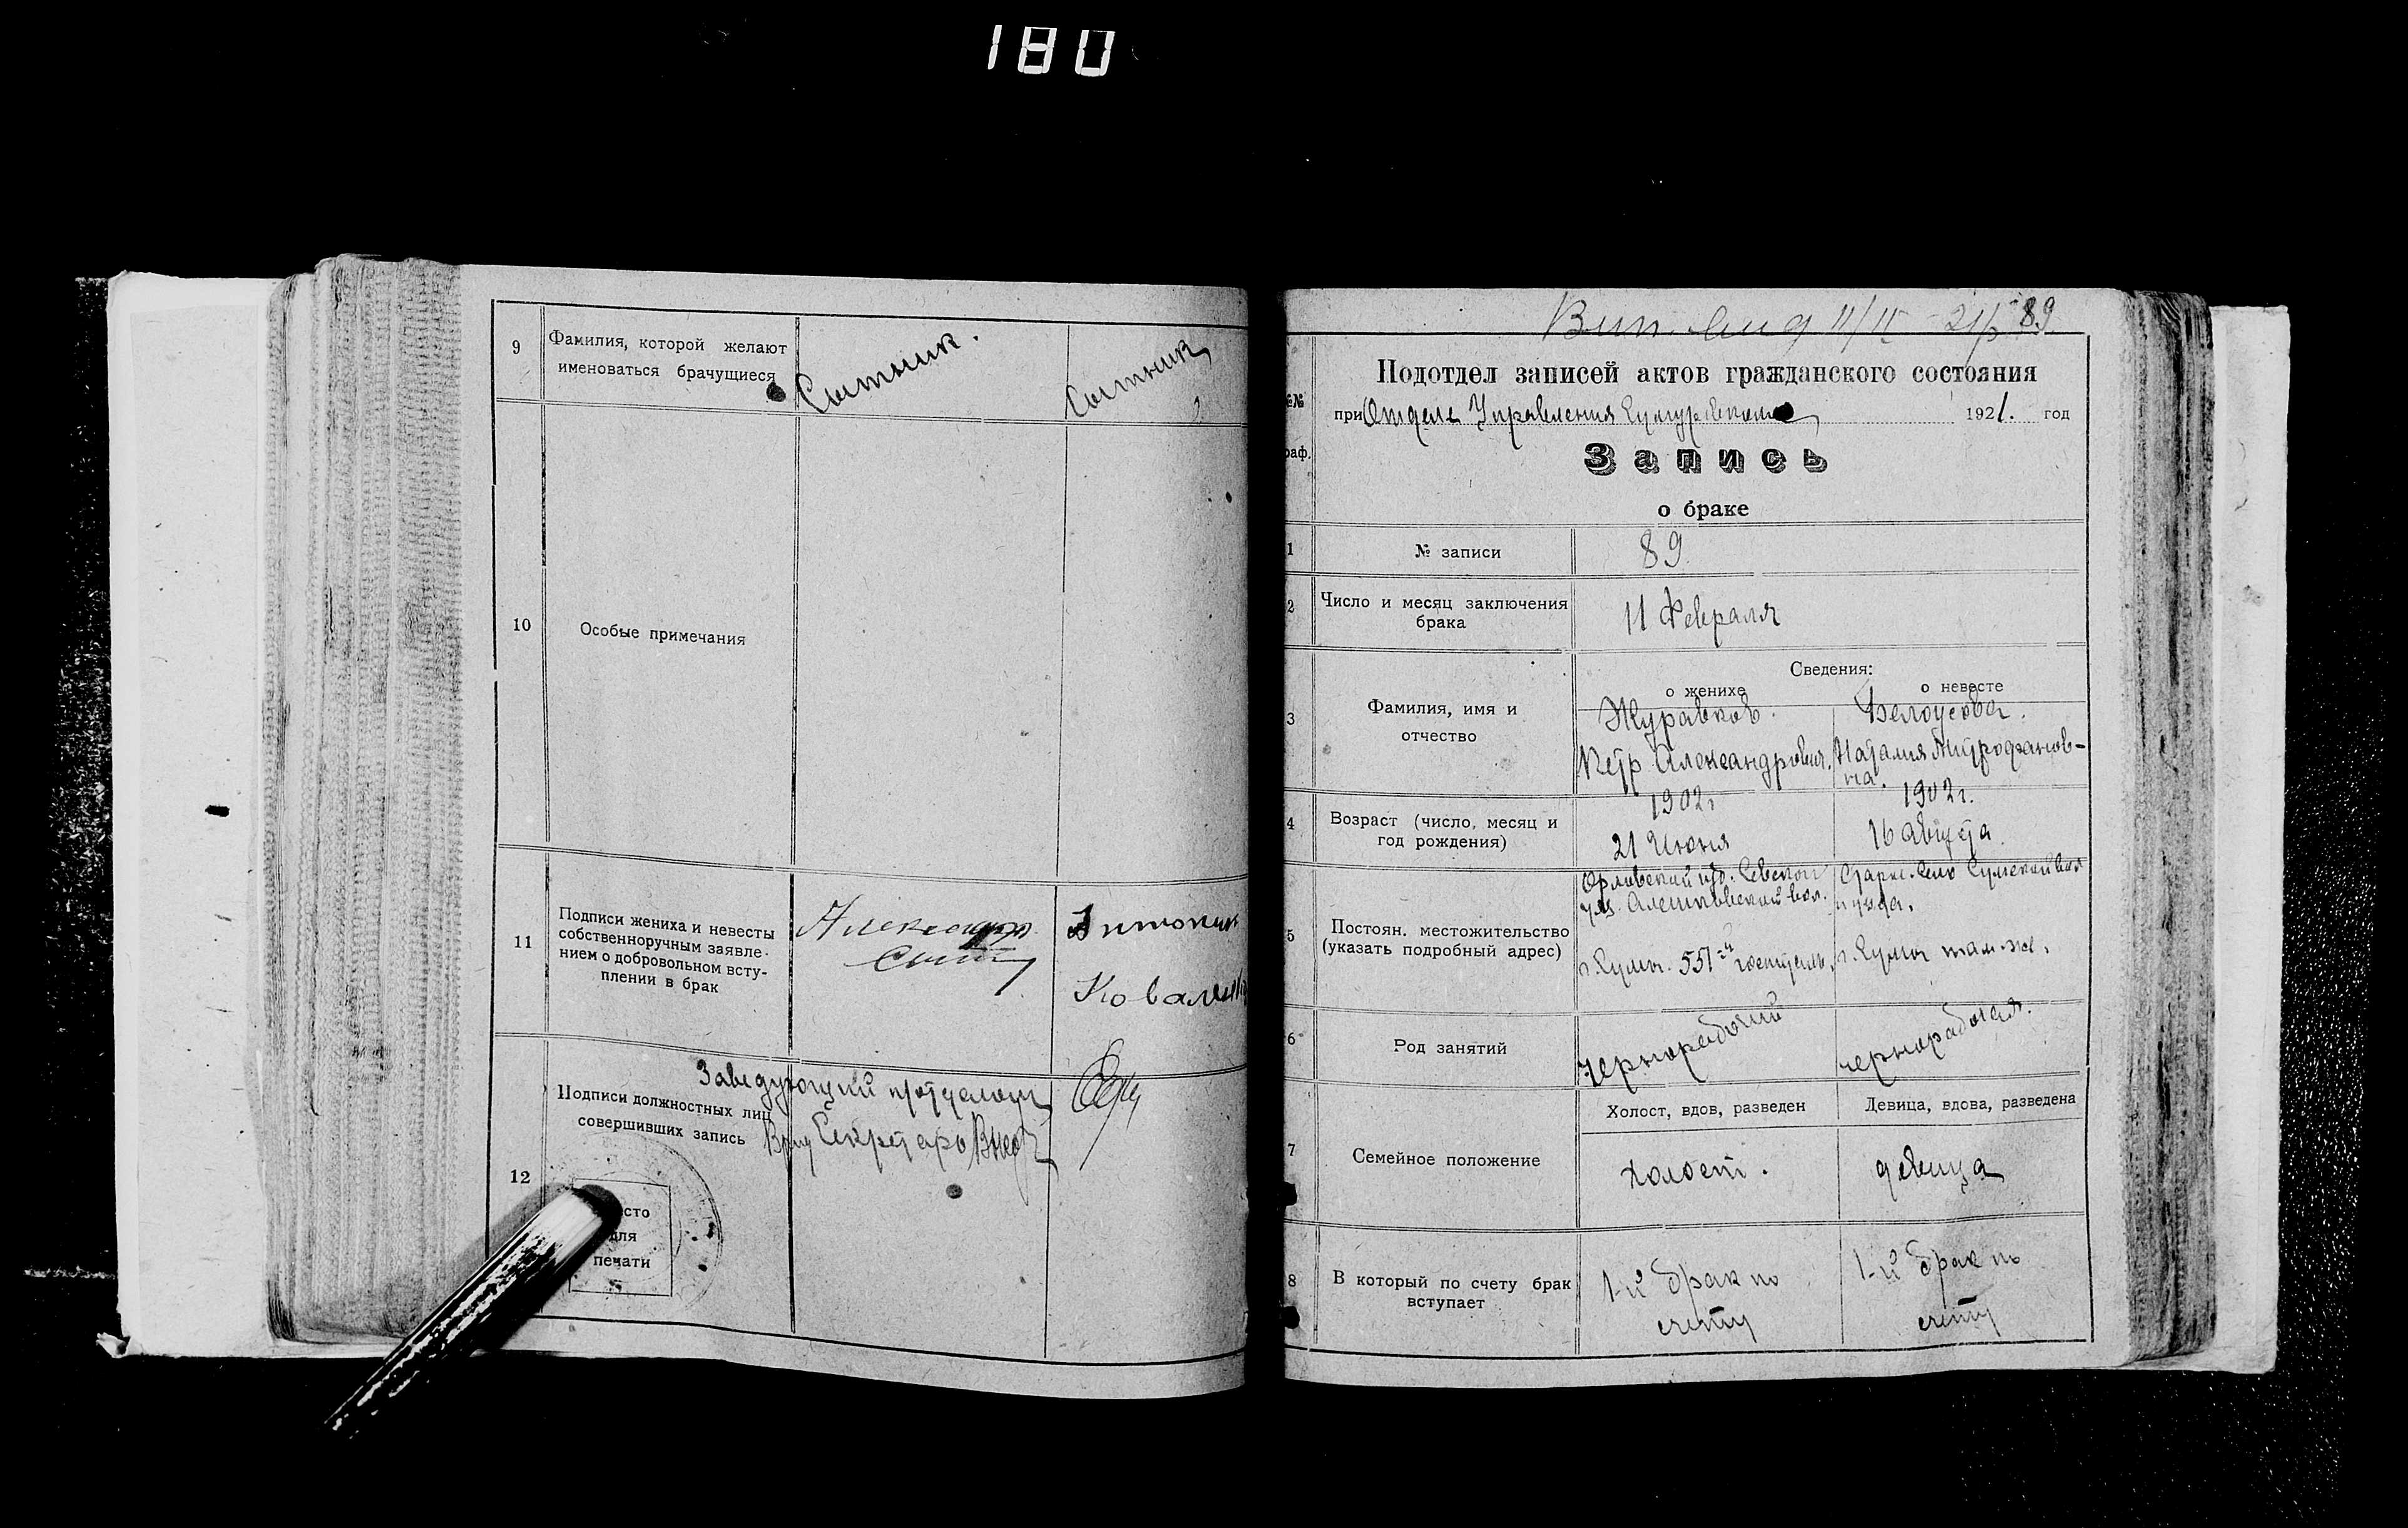 180
9
Фамилия, которой желают
именоваться брачущиеся
Сытник.
Сытник
10
Особые примечания
11
Подписи жениха и невесты
собственноручным заявле-
нием о добровольном всту-
плении в брак
Александр
Сытн
12
Подписи должностных лиц
совершивших запись
Заведующий
Секретарь
сто
для
печати
11/II 21 89
№№
раф.
Подотдел записей актов гражданского состояния
при Отделе Управления 1921. год
Запись
о браке
1
№ записи
89
2
Число и месяц заключения
брака
11 Февраля
Сведения:
о женихе
о невесте
3
Фамилия, имя и
отчество
Журавков.
Петр Александрович.
Белоусова.
Наталия Митрофанов-
на.
4
Возраст (число, месяц и
год рождения)
1902 г
21 Июня
1902 г.
16 Августа
5
Постоян. местожительство
(указать подробный адрес)
Орловской губ. Севского
уез. Алешковской вол.
г. Сумы. 551-й госпиталь.
село Сумской вол
и уезда.
г. Сумы там-же.
6
Род занятий
Чернорабочий
чернорабочая.
7
Семейное положение
Холост, вдов, разведен
Девица, вдова, разведена
холост.
девица
8
В который по счету брак
вступает
1-й брак по
счету
1-й брак по
счету